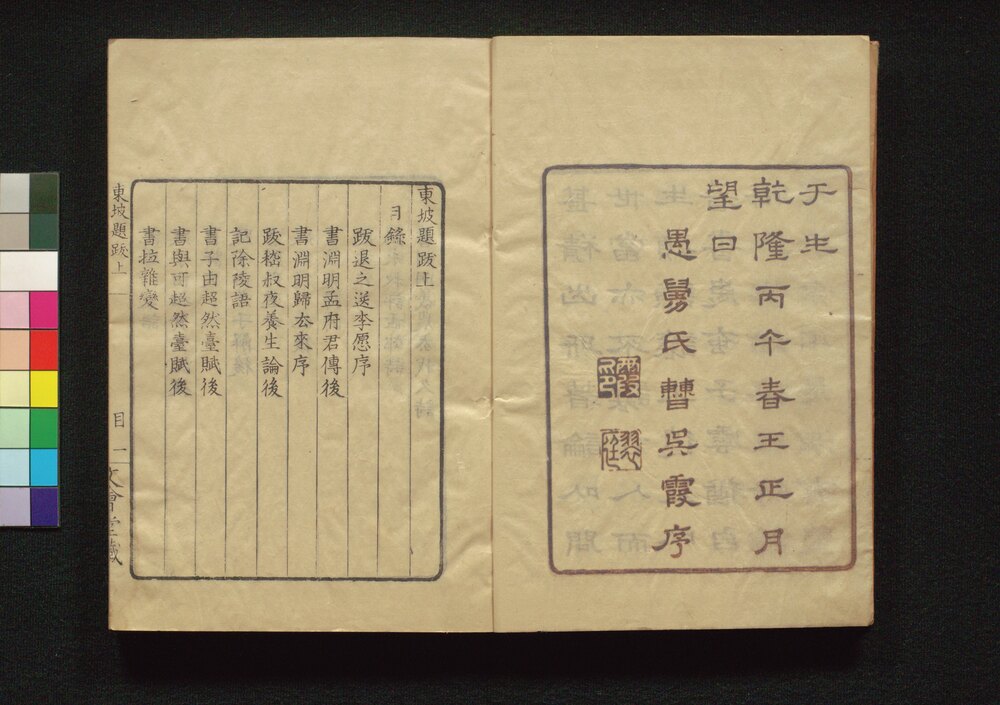 于生
乾隆丙午春王正月
望日
愚舅氏曹吳霞序
東坡題跋上
目錄
跋退之送李愿序
書淵明孟府君傳後
書淵明歸去來序
跋嵇叔夜養生論後
記徐陵語
書子由超然臺賦後
書與可超然臺賦後
書拉雜變
東坡題跋上
目 一
文會堂藏